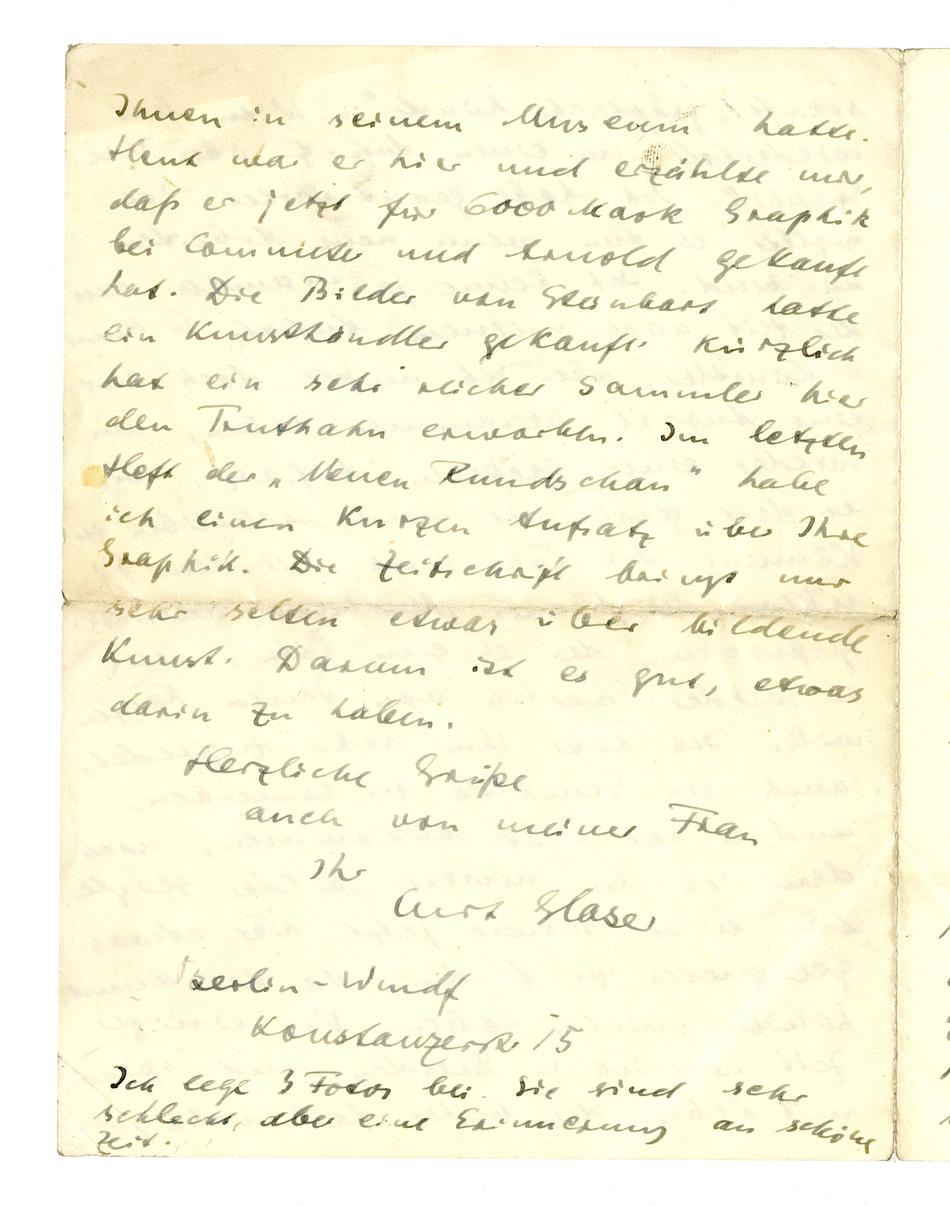 Ihnen in seinem Museum hatte.
Heut war er hier und erzählte mir,
daß er jetzt für 6000 Mark Graphik
bei Commeter und Arnold gekauft
hat. Die Bilder von Steinbart hatte
ein Kunsthändler gekauft. Kürzlich
hat ein sehr reicher Sammler hier
den Truthahn erworben. Im letzten
Heft der „Neuen Rundschau" habe
ich einen kurzen Aufsatz über Ihre
Graphik. Die Zeitschrift bringt nur
sehr selten etwas über bildende
Kunst. Darum ist es gut, etwas
darin zu haben.
Herzliche Grüße
auch von meiner Frau
Ihr
Curt Glaser
Berlin-Wmdf
Konstanzerstr 15
Ich lege 3 Fotos bei. Sie sind sehr
schlecht, aber eine Erinnerung an schöne
Zeit.